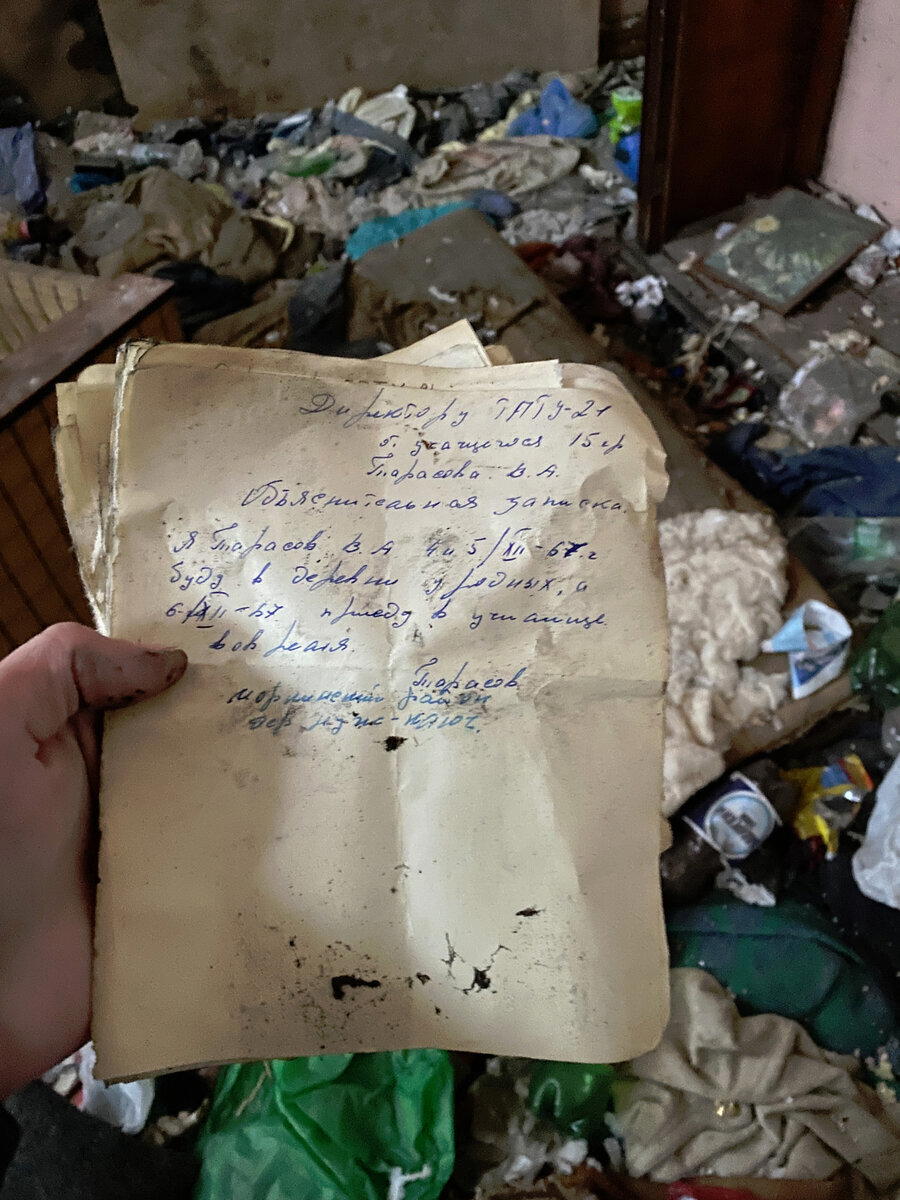 Директору ГПТУ-21
от учащегося 15 гр
Тарасова В.А.
Объяснительная записка.
Я Тарасов В.А 4 и 5/XII-67.г
буду в деревни у родных, а
6/XII-67 приеду в училище
вовремя.
Тарасов
район
дер